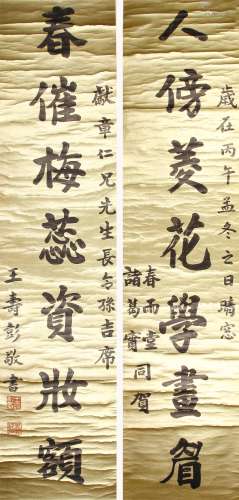 人傍菱花學畫眉
歲在丙午孟冬之日晴窓
春雨堂
諸葛寶同賀
春催梅蕊資妝額
獻章仁兄先生長句孫吉席
王壽彭敬書